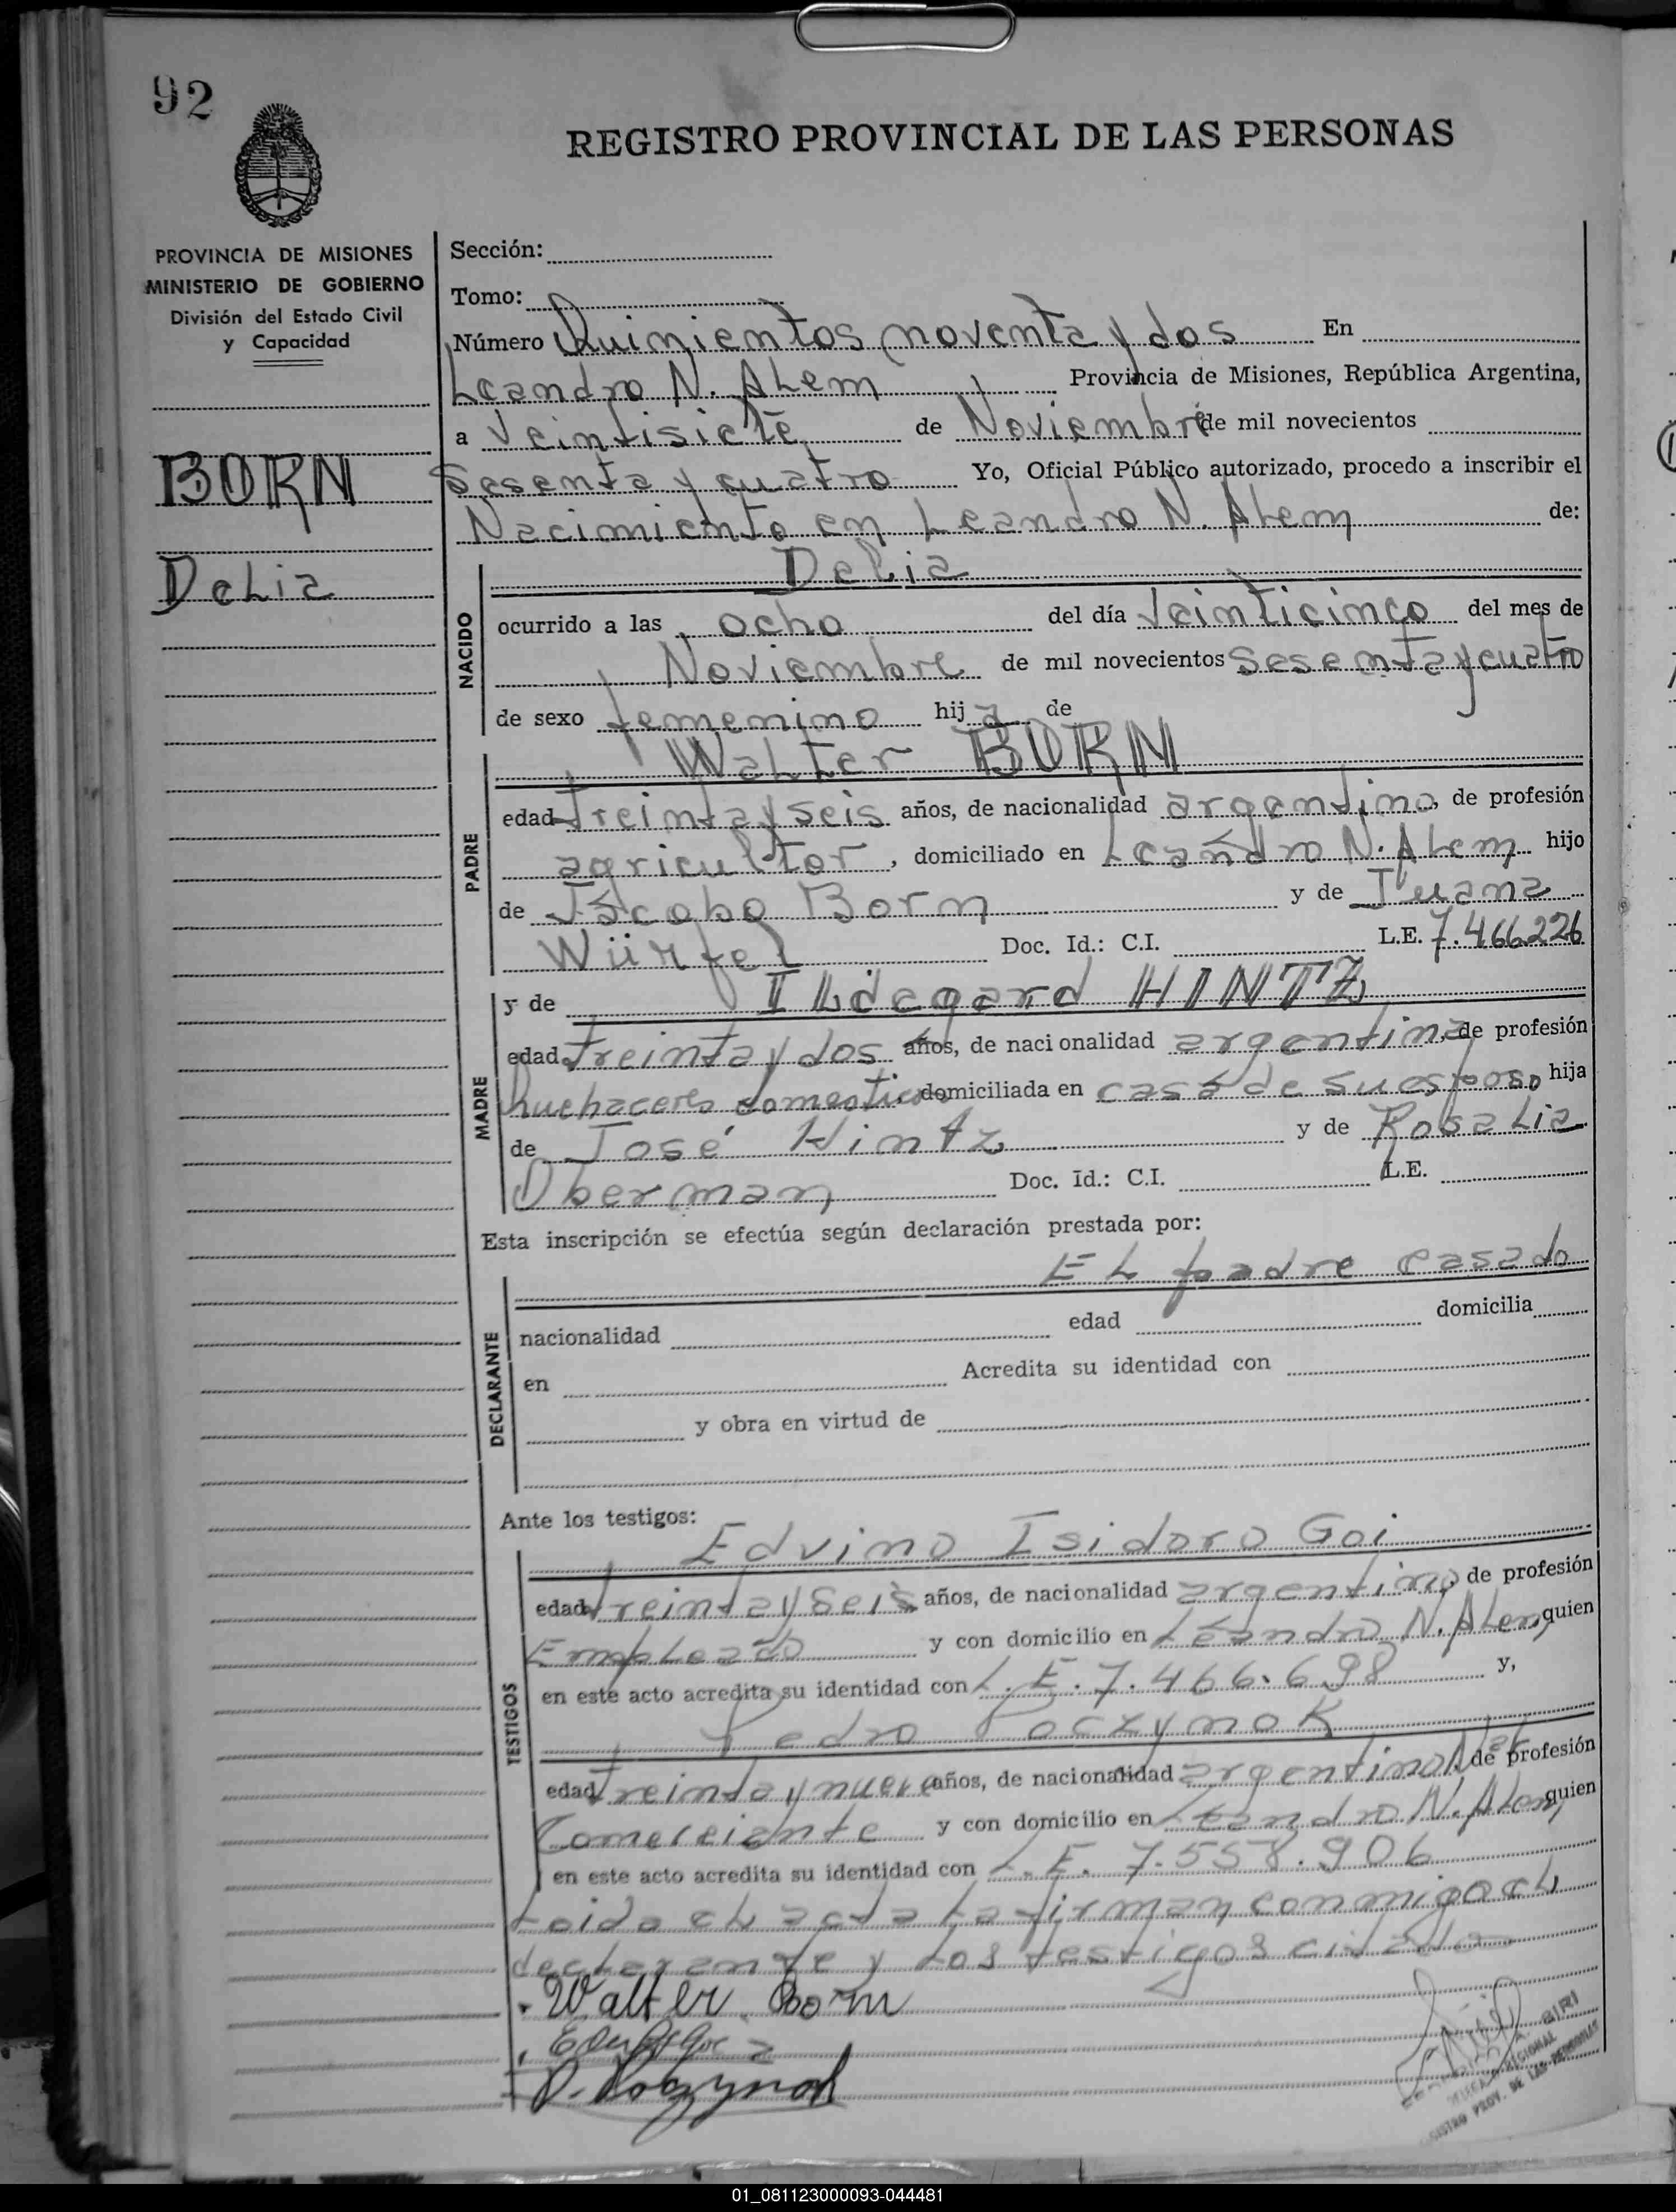 92
REGISTRO PROVINCIAL DE LAS PERSONAS
PROVINCIA DE MISIONES
MINISTERIO DE GOBIERNO
División del Estado Civil
y Capacidad
BORN
Delia
Sección:
Tomo:
Número Quinientos noventa y dos En
Leandro N. Alem Provincia de Misiones, República Argentina,
a Veintisiete de Noviembre de mil novecientos
sesenta y cuatro Yo, Oficial Público autorizado, procedo a inscribir el
Nacimiento en Leandro N. Alem de:
NACIDO
Delia
ocurrido a las ocho del día Veinticinco del mes de
Noviembre de mil novecientos sesenta y cuatro
de sexo femenino hija de
PADRE
Walter BORN
edad treinta y seis años, de nacionalidad argentino, de profesión
agricultor, domiciliado en Leandro N. Alem hijo
de Jacobo Born y de Juana
Würfel Doc. Id.: C.I. L.E. 7.466226
MADRE
y de Ildegard HINTZ
edad treinta y dos años, de nacionalidad argentina, de profesión
Quehaceres domestico, domiciliada en casa de su esposo hija
de José Hintz y de Rosalia
Oberman Doc. Id.: C.I. L.E.
Esta inscripción se efectúa según declaración prestada por:
DECLARANTE
El padre casado
nacionalidad edad domicilia
en Acredita su identidad con
y obra en virtud de
Ante los testigos:
TESTIGOS
Edvino Isidoro Goi
edad treinta y seis años, de nacionalidad argentino, de profesión
Empleado y con domicilio en Leandro N. Alem, quien
en este acto acredita su identidad con L.E. 7.466.698 y,
Pedro Poczynok
edad treinta y nueve años, de nacionalidad argentino de profesión
Comerciante y con domicilio en Leandro N. Alem, quien
en este acto acredita su identidad con L.E. 7.558.906
Leida el acta la firman conmigo el
declarante y los testigos citados
Walter Born
P. Poczynok
REGIONAL
PROV. DE LAS PERSONAS
01_081123000093-044481